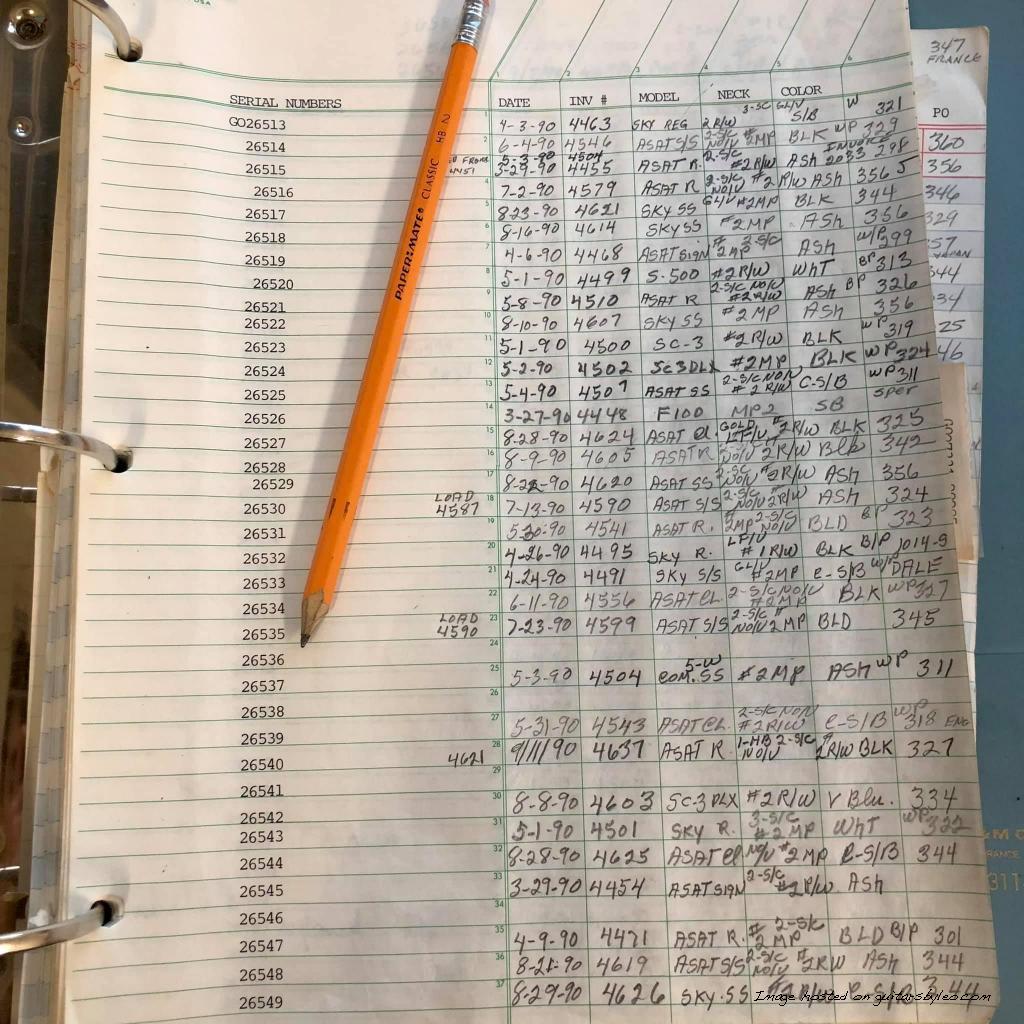 USA
347
FRANCE
SERIAL NUMBERS DATE INV # MODEL NECK COLOR PO
GO26513 4-3-90 4463 SKY REG 3-SC GL/V 2R/W S/B W 321
26514 6-4-90 4546 ASAT S/S 2-S/C NO/V #2MP BLK WP 329
26515 4451 3-29-90 4455 ASAT R. 2-S/C #2 R/W ASH 298
26516 7-2-90 4579 ASAT R 2-S/C NO/V #2 R/W ASH 356
26517 8-23-90 4621 SKY SS GL/V #2MP BLK 344
26518 8-16-90 4614 SKY SS #2MP ASH 356
26519 4-6-90 4468 ASAT SIGN # 3-S/C 2MP ASH W/P 299
26520 5-1-90 4499 S-500 #2R/W WHT BP 313
26521 5-8-90 4510 ASAT R 2-S/C NO/V #2R/W ASH BP 326
26522 8-10-90 4607 SKY SS #2MP ASH 356
26523 5-1-90 4500 SC-3 #2 R/W BLK WP 319
26524 5-2-90 4502 SC3DLX #2MP BLK WP 324
26525 5-4-90 4507 ASAT SS 2-S/C NO/V #2 R/W C-S/B WP 311
26526 3-27-90 4448 F100 MP2 SB SPER
26527 8-28-90 4624 ASAT CL. GOLD #2R/W BLK 325
26528 8-9-90 4605 ASAT R NO/V 2R/W Blk 342
26529 8-22-90 4620 ASAT SS 2-SC NO/V #2R/W ASH 356
26530 LOAD 4587 7-13-90 4590 ASAT S/S 2-S/C NO/V 2R/W ASH 324
26531 5-30-90 4541 ASAT R. # 2-S/C 2MP NO/V BLD BP 323
26532 4-26-90 4495 SKY R. LF/V #1R/W BLK B/P 1014-S
26533 4-24-90 4491 SKY S/S GL/V #2MP C-S/B W/P DALE
26534 6-11-90 4556 ASAT CL. 2-S/C NO/V #2MP BLK WP 327
26535 LOAD 4590 7-23-90 4599 ASAT S/S 2-S/C # NO/V 2MP BLD 345
26536
26537 5-3-90 4504 COM. SS 5-W #2MP ASH WP 311
26538
26539 5-31-90 4543 ASAT CL. 2-S/C NO/V #2R/W C-S/B WP 318 ENG
26540 4621 9/11/90 4637 ASAT R. 1-HB 2-S/C NO/V # 2R/W BLK 327
26541
26542 8-8-90 4603 SC-3 DLX #2R/W V Blu. 334
26543 5-1-90 4501 SKY R. 3-S/C #2MP WHT WP 322
26544 8-28-90 4625 ASAT Cl NO/V #2MP C-S/B 344
26545 3-29-90 4454 ASAT SIGN 2-S/C #2R/W ASH
26546
26547 4-9-90 4471 ASAT R. # 2-S/C 2MP BLD B/P 301
26548 8-21-90 4619 ASAT S/S 2-S/C NO/V #2RW ASH 344
26549 8-29-90 4626 SKY-SS #2R/W C-S/B 344
PAPER:MATE® CLASSIC HB 2
360
356
346
329
311
Image hosted on guitarsbyleo.com